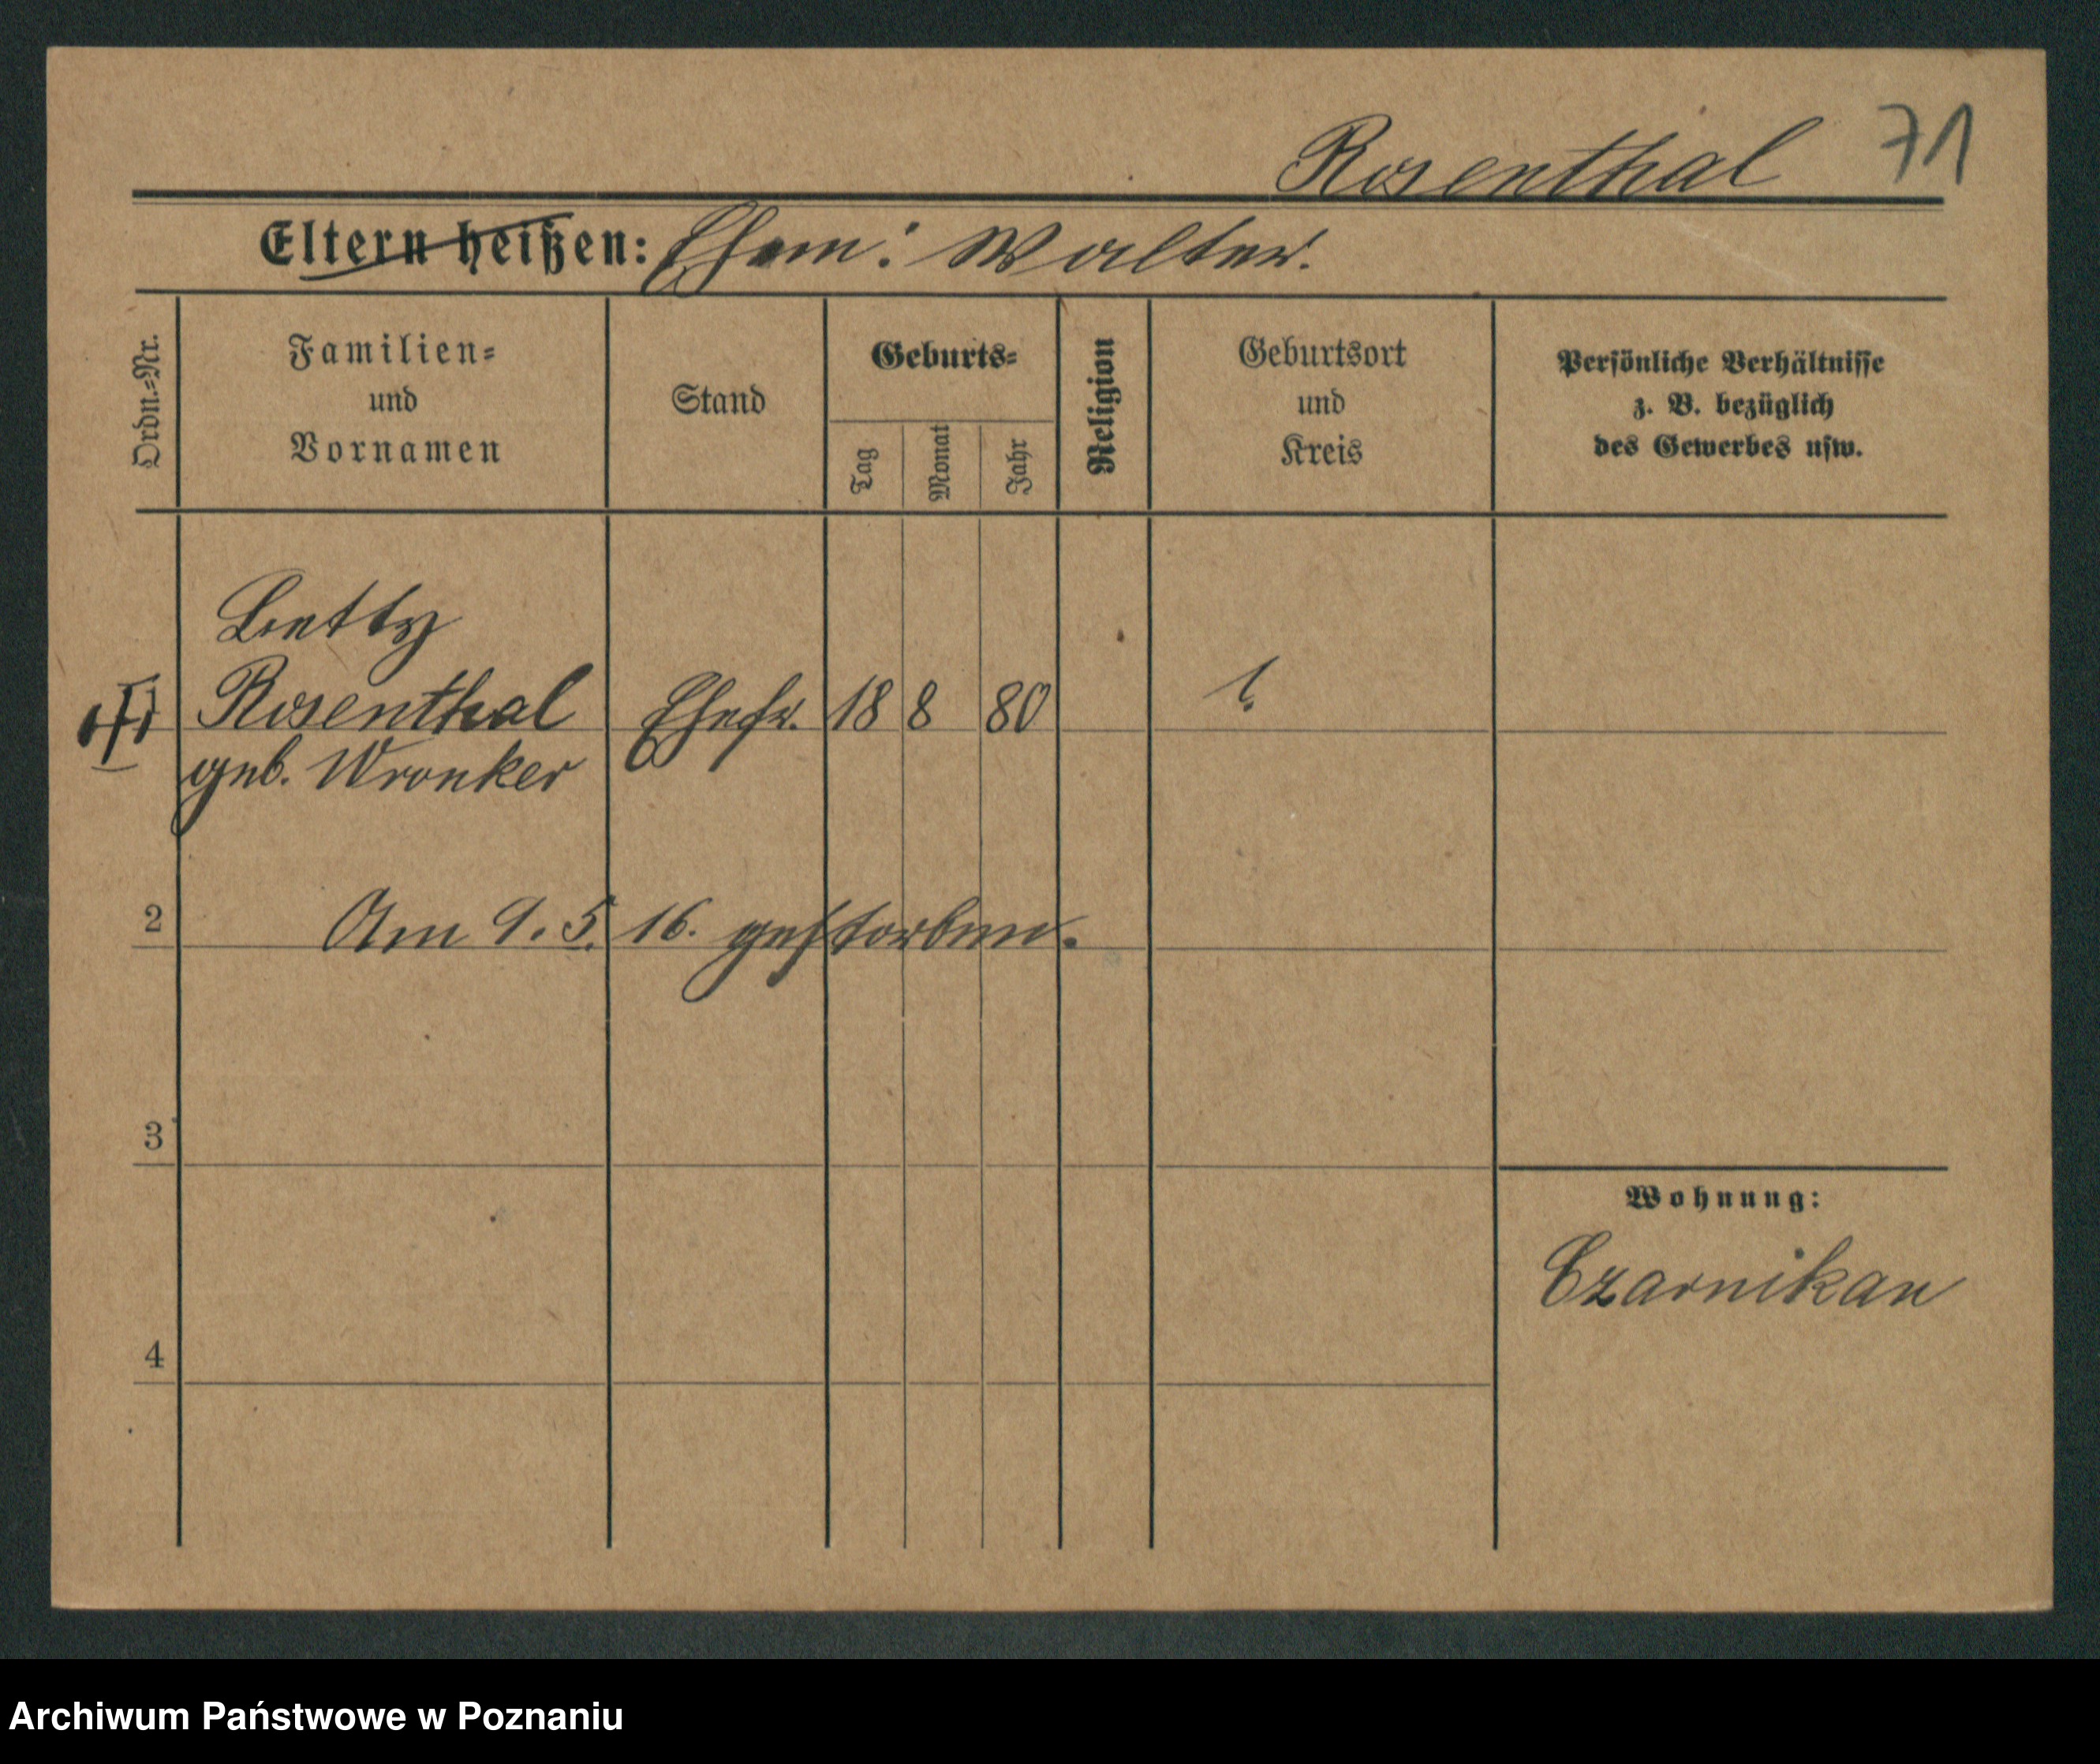 Rosenthal 71
Eltern heißen: Ehem: Walter.
Ordn.=Nr.
Familien=
und
Vornamen
Stand
Geburts=
Tag
Monat
Jahr
Religion
Geburtsort
und
Kreis
Persönliche Verhältnisse
z. B. bezüglich
des Gewerbes usw.
Betty
Rosenthal Ehefr. 18 8 80
geb. Wronker
2 Am 9. 5. 16. gestorben.
3
Wohnung:
Czarnikau
4
Archiwum Państwowe w Poznaniu